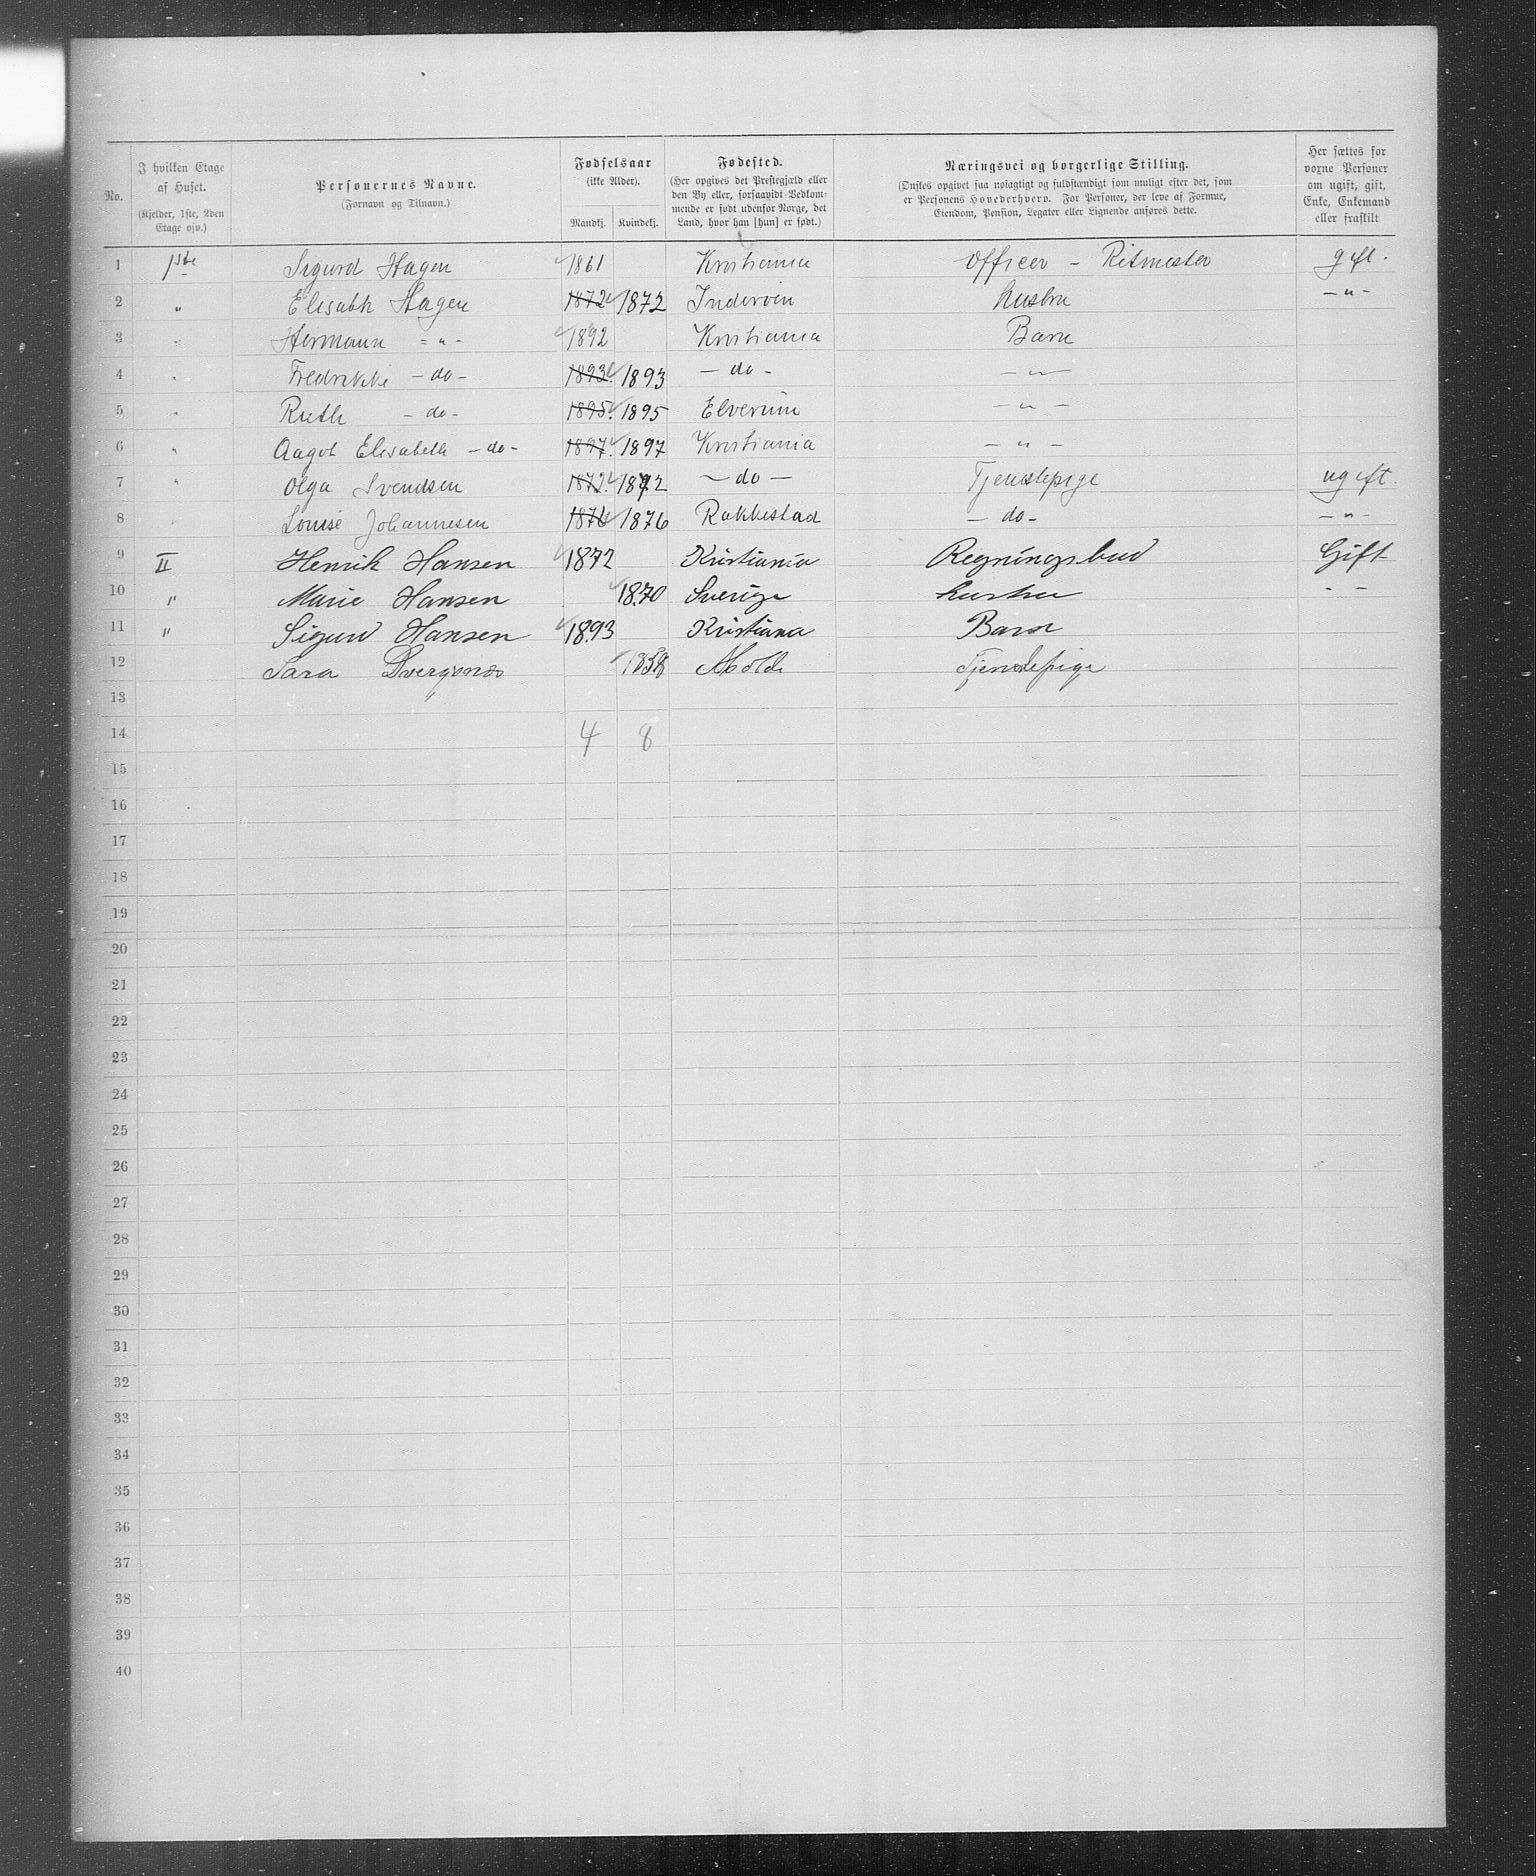 No. | I hvilken Etage af Huset. (Kjelder, 1ste, 2den Etage osv.) | Personernes Navne. (Fornavn og Tilnavn.) | Fødselsaar (ikke Alder). Mandkj. | Kvindekj. | Fødested. (Her opgives det Prestegjæld eller den By eller, forsaavidt Vedkommende er født udenfor Norge, det Land, hvor han [hun] er født.) | Næringsvei og borgerlige Stilling. (Ønskes opgivet saa nøiagtigt og fuldstændigt som muligt efter det, som er Personens Hovederhverv. For Personer, der leve af Formue, Eiendom, Pension, Legater eller Lignende anføres dette. | Her sættes for voxne Personer om ugift, gift, Enke, Enkemand eller fraskilt
1 | 1ste | Sigurd Hagen | 1861 | | Kristiania | Officer – Ritmester | gift.
2 | " | Elisabth Hagen | 1872 | 1872 | Inderøen | husbru | – " –
3 | " | Hermann = " - | 1892 | | Kristiania | Barn
4 | " | Fredrikke – do – | 1893. | 1893 | – do – | – " –
5 | " | Ruth – do – | 1895. | 1895 | Elverum | – " –
6 | " | Aagot Elisabeth – do – | 1897. | 1897 | Kristiania | – " –
7 | " | Olga Svendsen | 1872. | 1872 | – do – | Tjenstepige | ugift.
8 | " | Louise Johannesen | 1876 | 1876 | Rakkestad | – do – | – " –
9 | II | Henrik Hansen | 1872 | | Kristiania | Regningsbud | Gift
10 | " | Marie Hansen | | 1870 | Sverige | hustru | - -
11 | " | Sigurd Hansen | 1893 | | Kristiana | Barn
12 | | Sara | | 1858 | Molde | Tjenstepige
13
14 | | | 4 | 8
15
16
17
18
19
20
21
22
23
24
25
26
27
28
29
30
31
32
33
34
35
36
37
38
39
40